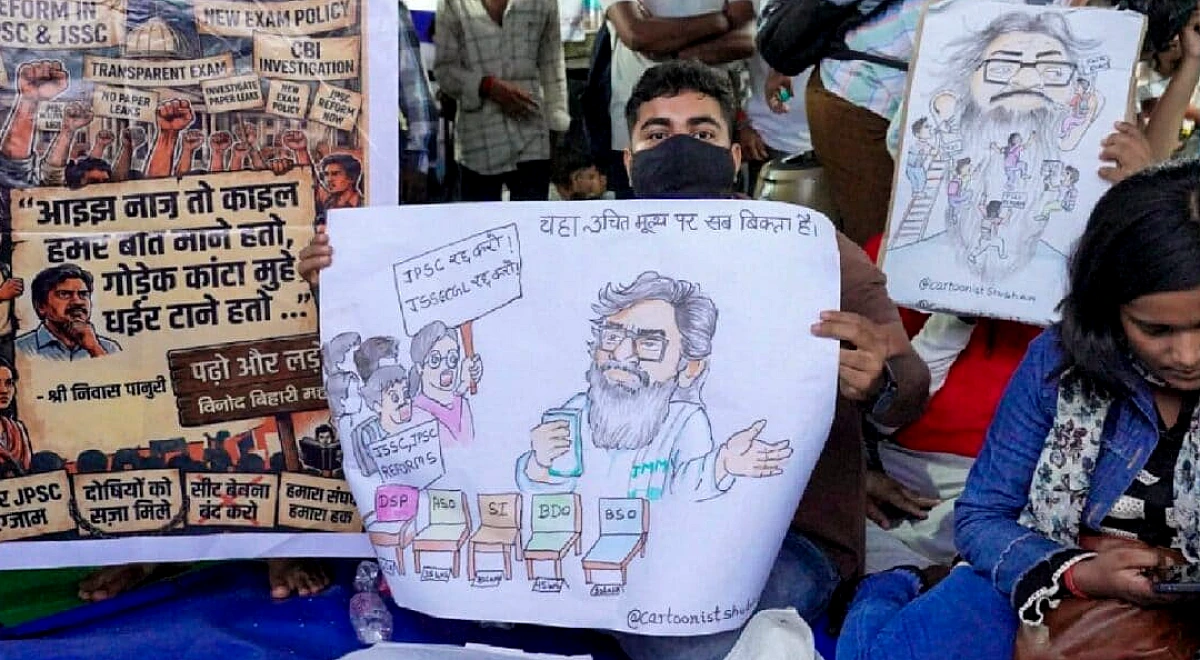 REFORM IN
PSC & JSSC
NEW EXAM POLICY
TRANSPARENT EXAM
CBI
INVESTIGATION
NO PAPER
LEAKS
INVESTIGATE
PAPER LEAKS
NEW
EXAM
POLICY
JPSC
REFORM
NOW
“आइझ नाज़ तो काइल
हमर बात माने हतो,
गोड़ेक कांटा मुहे
धईर टाने हतो ...”
- श्री निवास पानुरी
पढ़ो और लड़ो
विनोद बिहारी
JPSC
दोषियों को
सज़ा मिले
सीट बेचना
बंद करो
हमारा
हमारा हक
यहा उचित मूल्य पर सब बिकता है।
JPSC रद्द करो!
JSSCCGL रद्द करो!
JSSC, JPSC
REFORMS
JMM
DSP
ASO
SI
BDO
BSO
@cartoonistshu
@cartoonistshubham